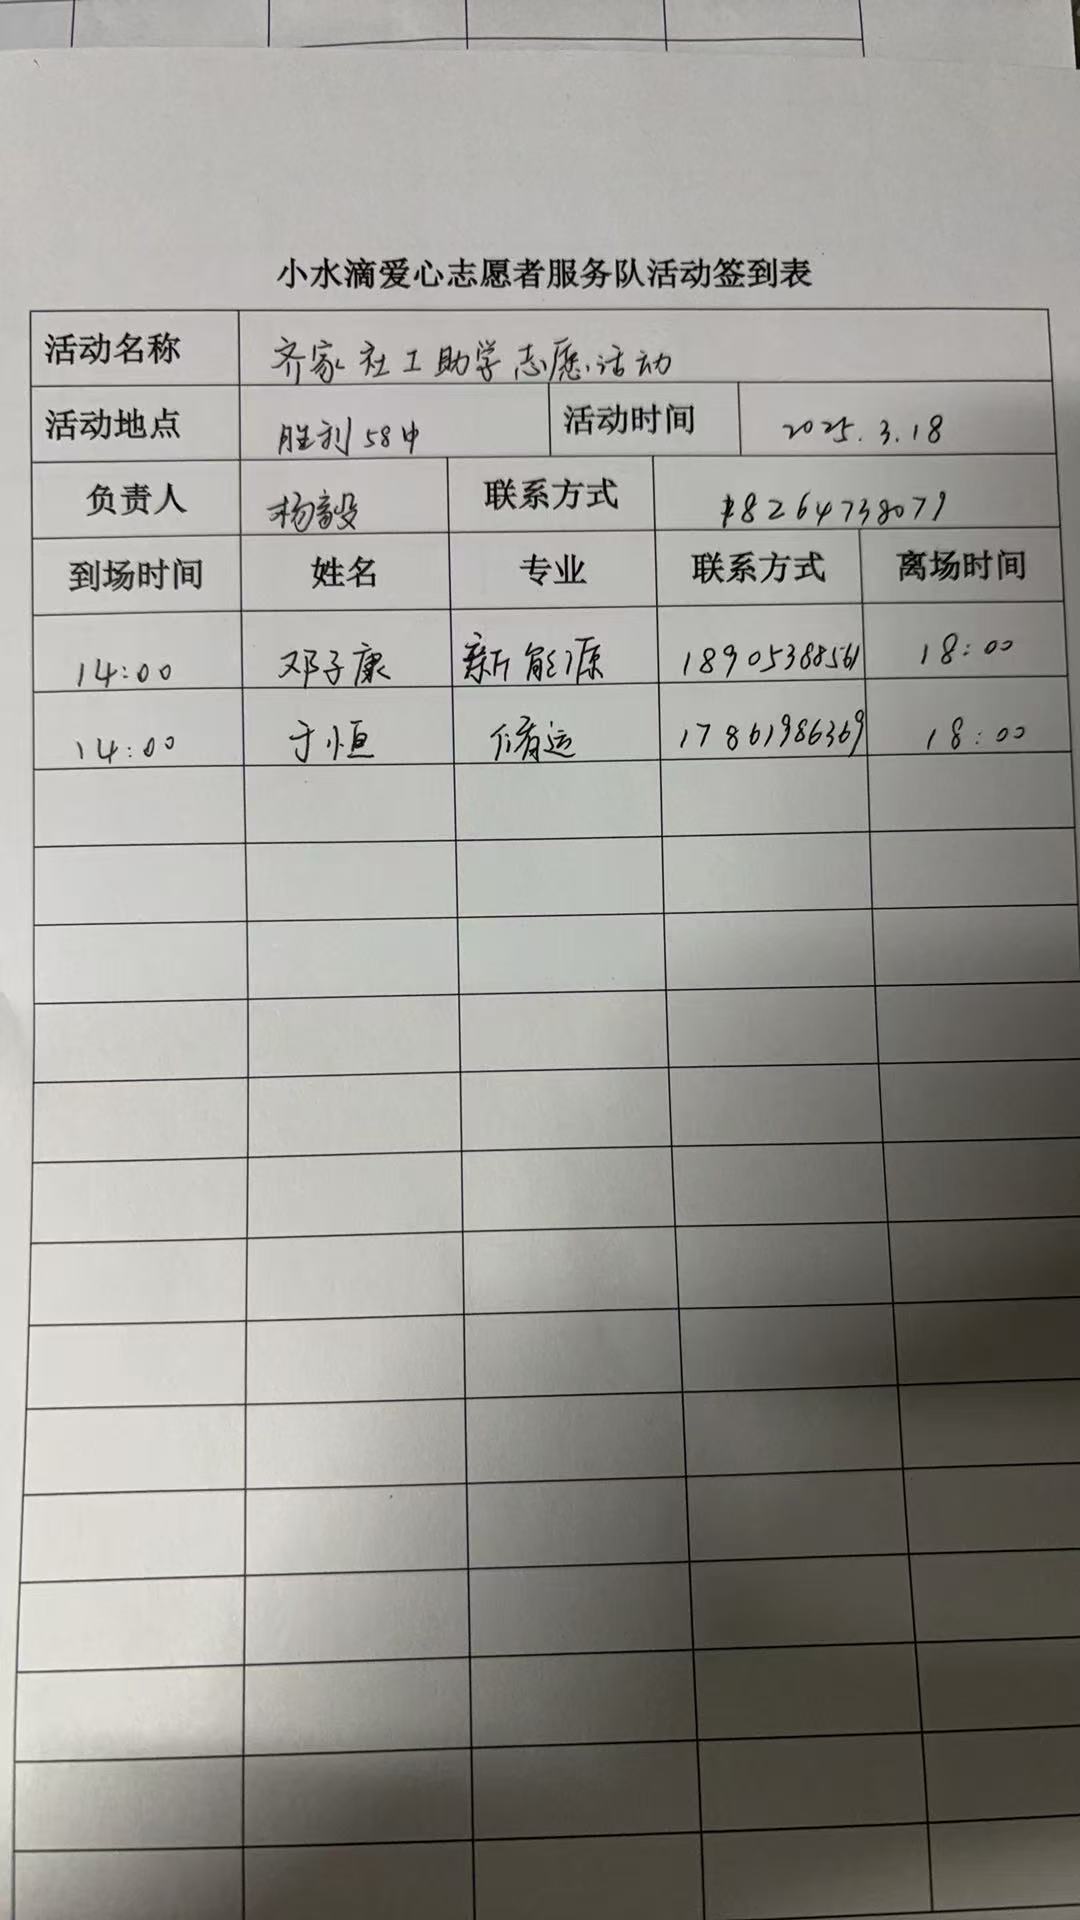 小水滴爱心志愿者服务队活动签到表
活动名称 齐家社工助学志愿活动
活动地点 胜利58中 活动时间 2025.3.18
负责人 杨毅 联系方式 18264738079
到场时间 姓名 专业 联系方式 离场时间
14:00 邓子康 新能源 18905388561 18:00
14:00 于恒 储运 17861986369 18:00